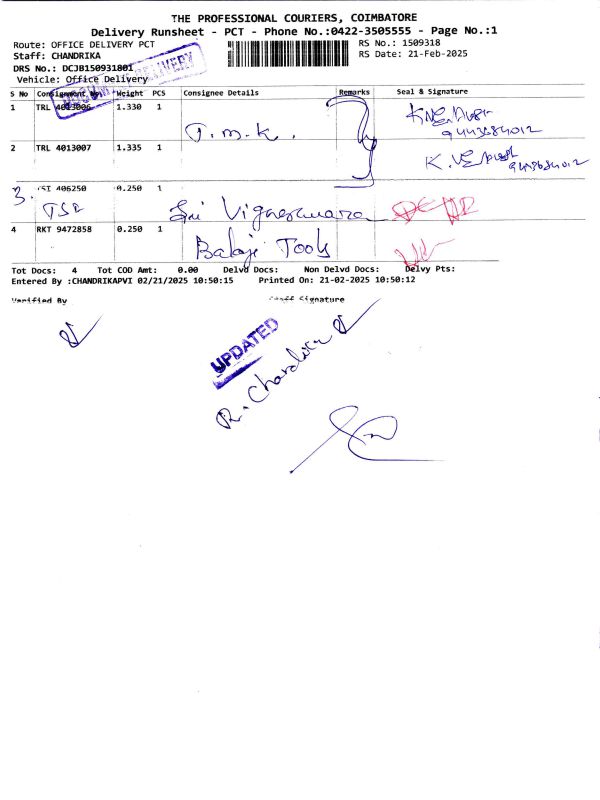 THE PROFESSIONAL COURIERS, COIMBATORE
Delivery Runsheet - PCT - Phone No.:0422-3505555 - Page No.:1
Route: OFFICE DELIVERY PCT
RS No.: 1509318
Staff: CHANDRIKA
RS Date: 21-Feb-2025
DRS No.: DCJB150931801
Vehicle: Office Delivery
S No Consignment No. Weight PCS Consignee Details Remarks Seal & Signature
1 TRL 4013006 1.330 1
T.M.K.
9443684012
2 TRL 4013007 1.335 1
3. TSI 406250 0.250 1
TSR Sri Vigneshwara
4 RKT 9472858 0.250 1 Balaji Tools
Tot Docs: 4 Tot COD Amt: 0.00 Delvd Docs: Non Delvd Docs: Delvy Pts:
Entered By :CHANDRIKAPVI 02/21/2025 10:50:15 Printed On: 21-02-2025 10:50:12
Verified By Staff Signature
UPDATED
R. Chandrika